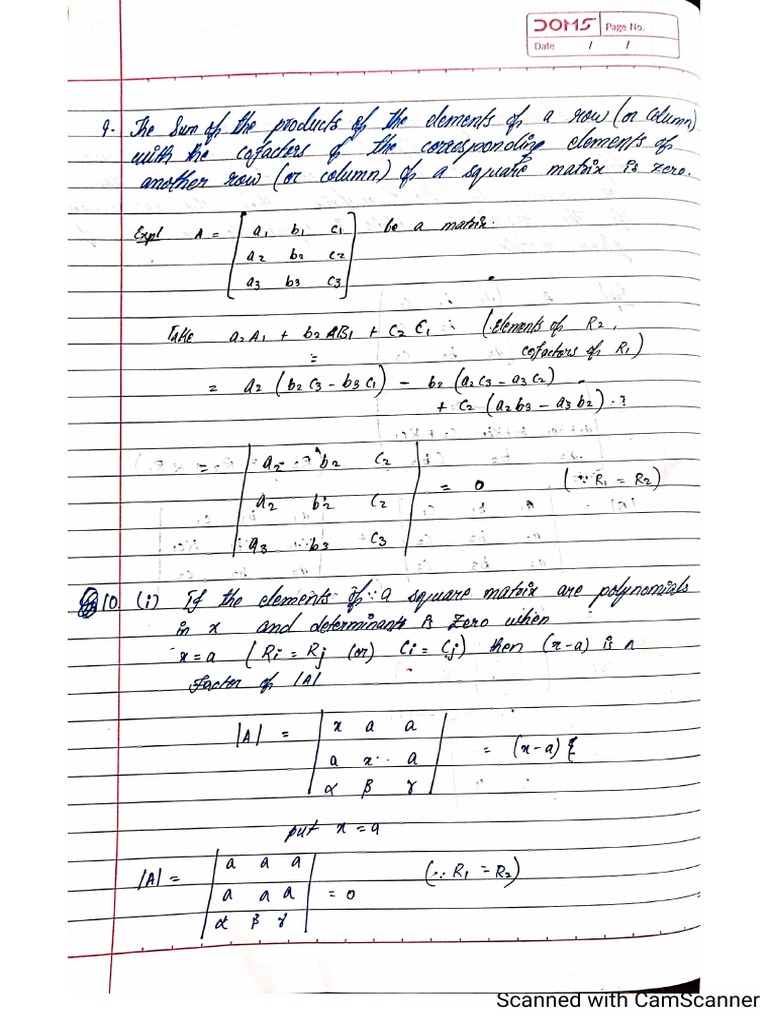 DOMS Page No.
Date / /
9. The Sum of the products of the elements of a row (or column)
with the cofactors of the corresponding elements of
another row (or column) of a square matrix is zero.
Expl A = [ a1 b1 c1 ] be a matrix.
a2 b2 c2
a3 b3 c3
Take a2A1 + b2 B1 + C2 C1 (elements of R2,
= cofactors of R1)
= a2 (b2 c3 - b3 c1) - b2 (a2c3 - a3c2)
+ c2 (a2b3 - a3b2)
= | a2 b2 c2 |
a2 b2 c2 = 0 (∵ R1 = R2)
a3 b3 c3
10. (i) If the elements of a square matrix are polynomials
in x and determinants is zero when
x = a (Ri = Rj (or) Ci = Cj) then (x-a) is a
factor of |A|
|A| = | x a a |
a x a = (x-a) {
α β γ
put x = a
|A| = | a a a | (∵ R1 = R2)
a a a = 0
α β γ
Scanned with CamScanner